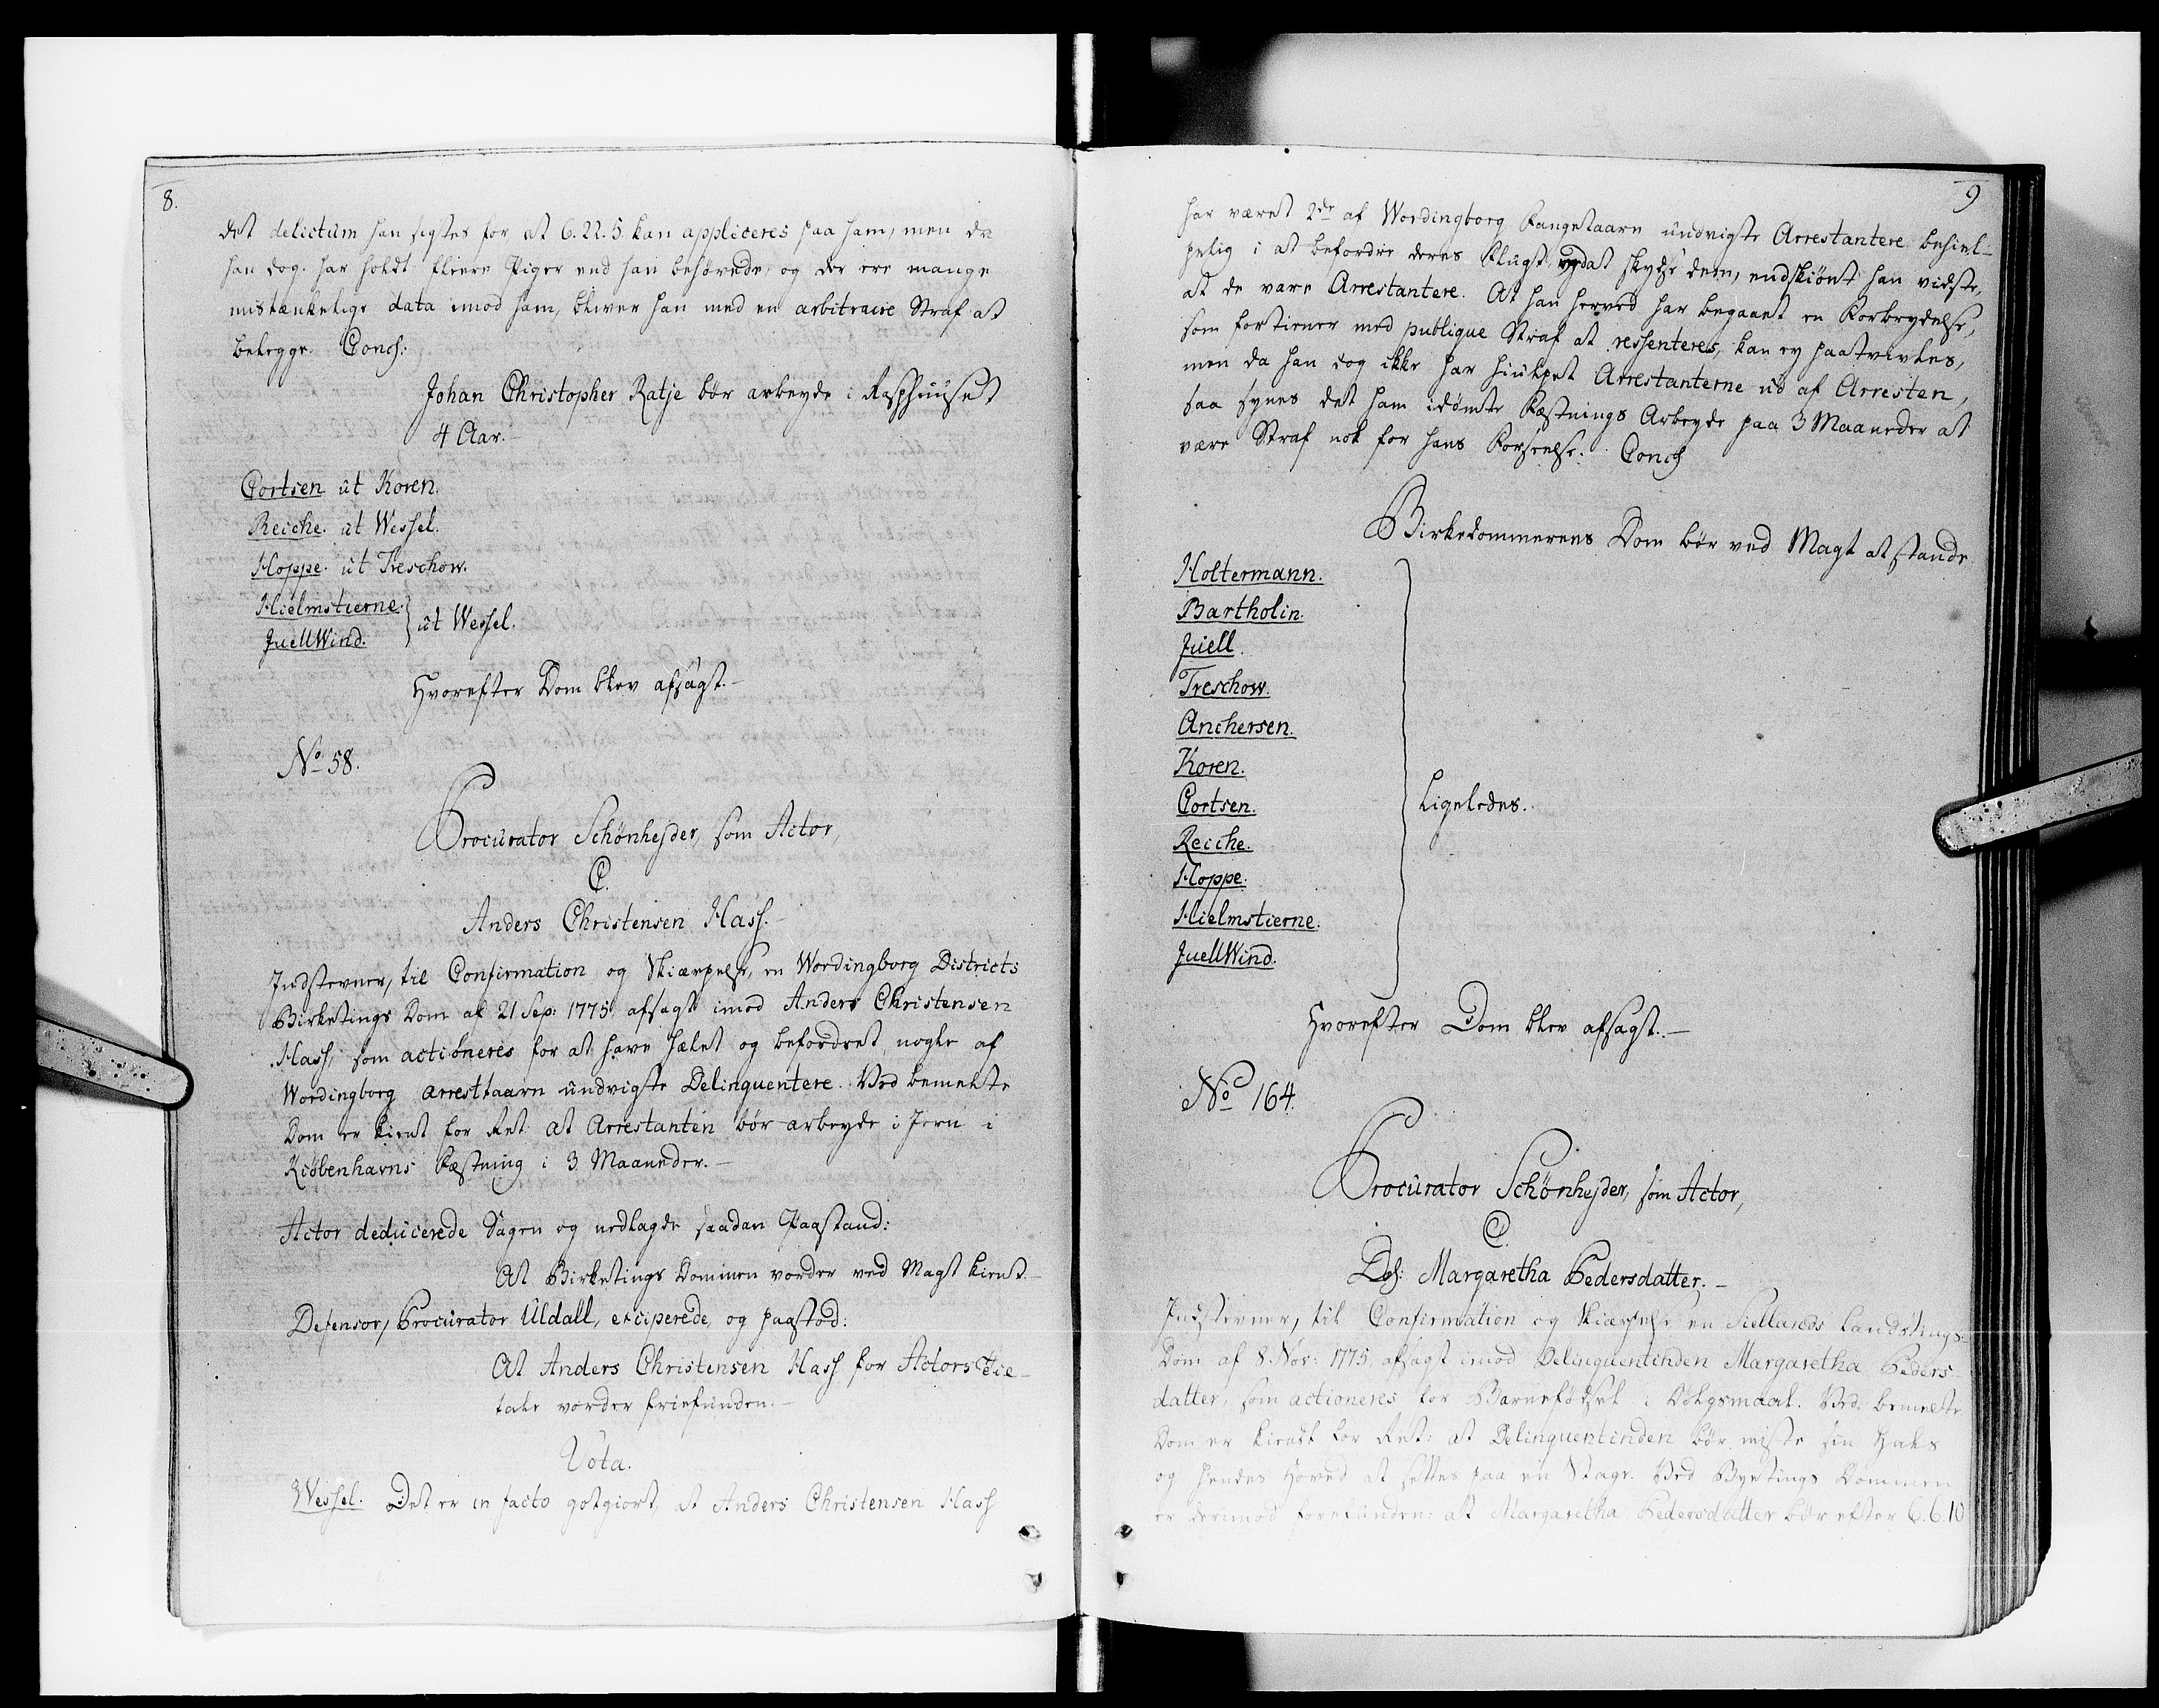 8.
det delictum han sigtes for at 6.22.5 kan appliceres paa ham, men da
han dog har holdt fleere Piger end han behøvede, og der ere mange
mistænkelige data imod ham, bliver han med en arbitraire Straf at
belegge. Concl:
Johan Christopher Ratje bør arbeyde i Rasphuuset
4 Aar.
Cortsen ut Koren.
Reiche. ut Wessel.
Hoppe. ut Treschow.
Hielmstierne.
JuellWind. ut Wessel.
Hvorefter Dom blev afsagt.
No 58.
Procurator Schønheyder, som Actor,
C.
Anders Christensen Hass.
Indstevner, til Confirmation og Skiærpelse, en Wordingborg Districts
Birketings Dom af 21 Sep: 1775 afsagt imod Anders Christensen
Hass, som actioneres for at have hælet og befordret nogle af
Wordingborg Arresttaarn undvigte Delinquentere. Ved bemelte
Dom er kient for Ret: at Arrestanten bør arbeyde i Jern i
Kiøbenhavns Fæstning i 3 Maaneder.
Actor deducerede Sagen og nedlagde saadan Paastand:
At Birketings Dommen vorder ved Magt kient.
Defensor, Procurator Uldall, exciperede, og paastod:
At Anders Christensen Hass for Actors Til-
tale vorder friefunden.
Vota.
Wessel. Det er in facto gotgiort, at Anders Christensen Hass
9
har været 2de af Wordingborg Fangetaarn undvigte Arrestantere behiel-
pelig i at befordre deres Flugt, ved at skydse dem, endskiønt han vidste,
at de vare Arrestantere. At han herved har begaaet en Forbrydelse,
som fortiener med publique Straf at ressenteres, kan ey paatvivles,
men da han dog ikke har hiulpet Arrestanterne ud af Arresten,
saa synes det ham idømte Fæstnings Arbeyde paa 3 Maaneder at
være Straf nok for hans Forseelse. Concl
Birkedommerens Dom bør ved Magt at stande
Holtermann.
Bartholin.
Juell.
Treschow.
Anchersen.
Koren.
Cortsen. Ligeledes.
Reiche.
Hoppe.
Hielmstierne.
JuellWind.
Hvorefter Dom blev afsagt.
No 164.
Procurator Schønheyder, som Actor,
C.
Del: Margaretha Pedersdatter.
Indstevner, til Confirmation og Skiærpelse en Siellands Landstings
Dom af 8 Nov: 1775, afsagt imod Delinquentinden Margaretha Peders-
datter, som actioneres for Barnefødsel i Dølgsmaal. Ved bemelte
Dom er kiendt for Ret: at Delinquentinden bør miste sin Hals
og hendes Hoved at settes paa en Stage. Ved Byetings Dommen
er derimod forefunden: at Margaretha Pedersdatter bør efter 6.6.10